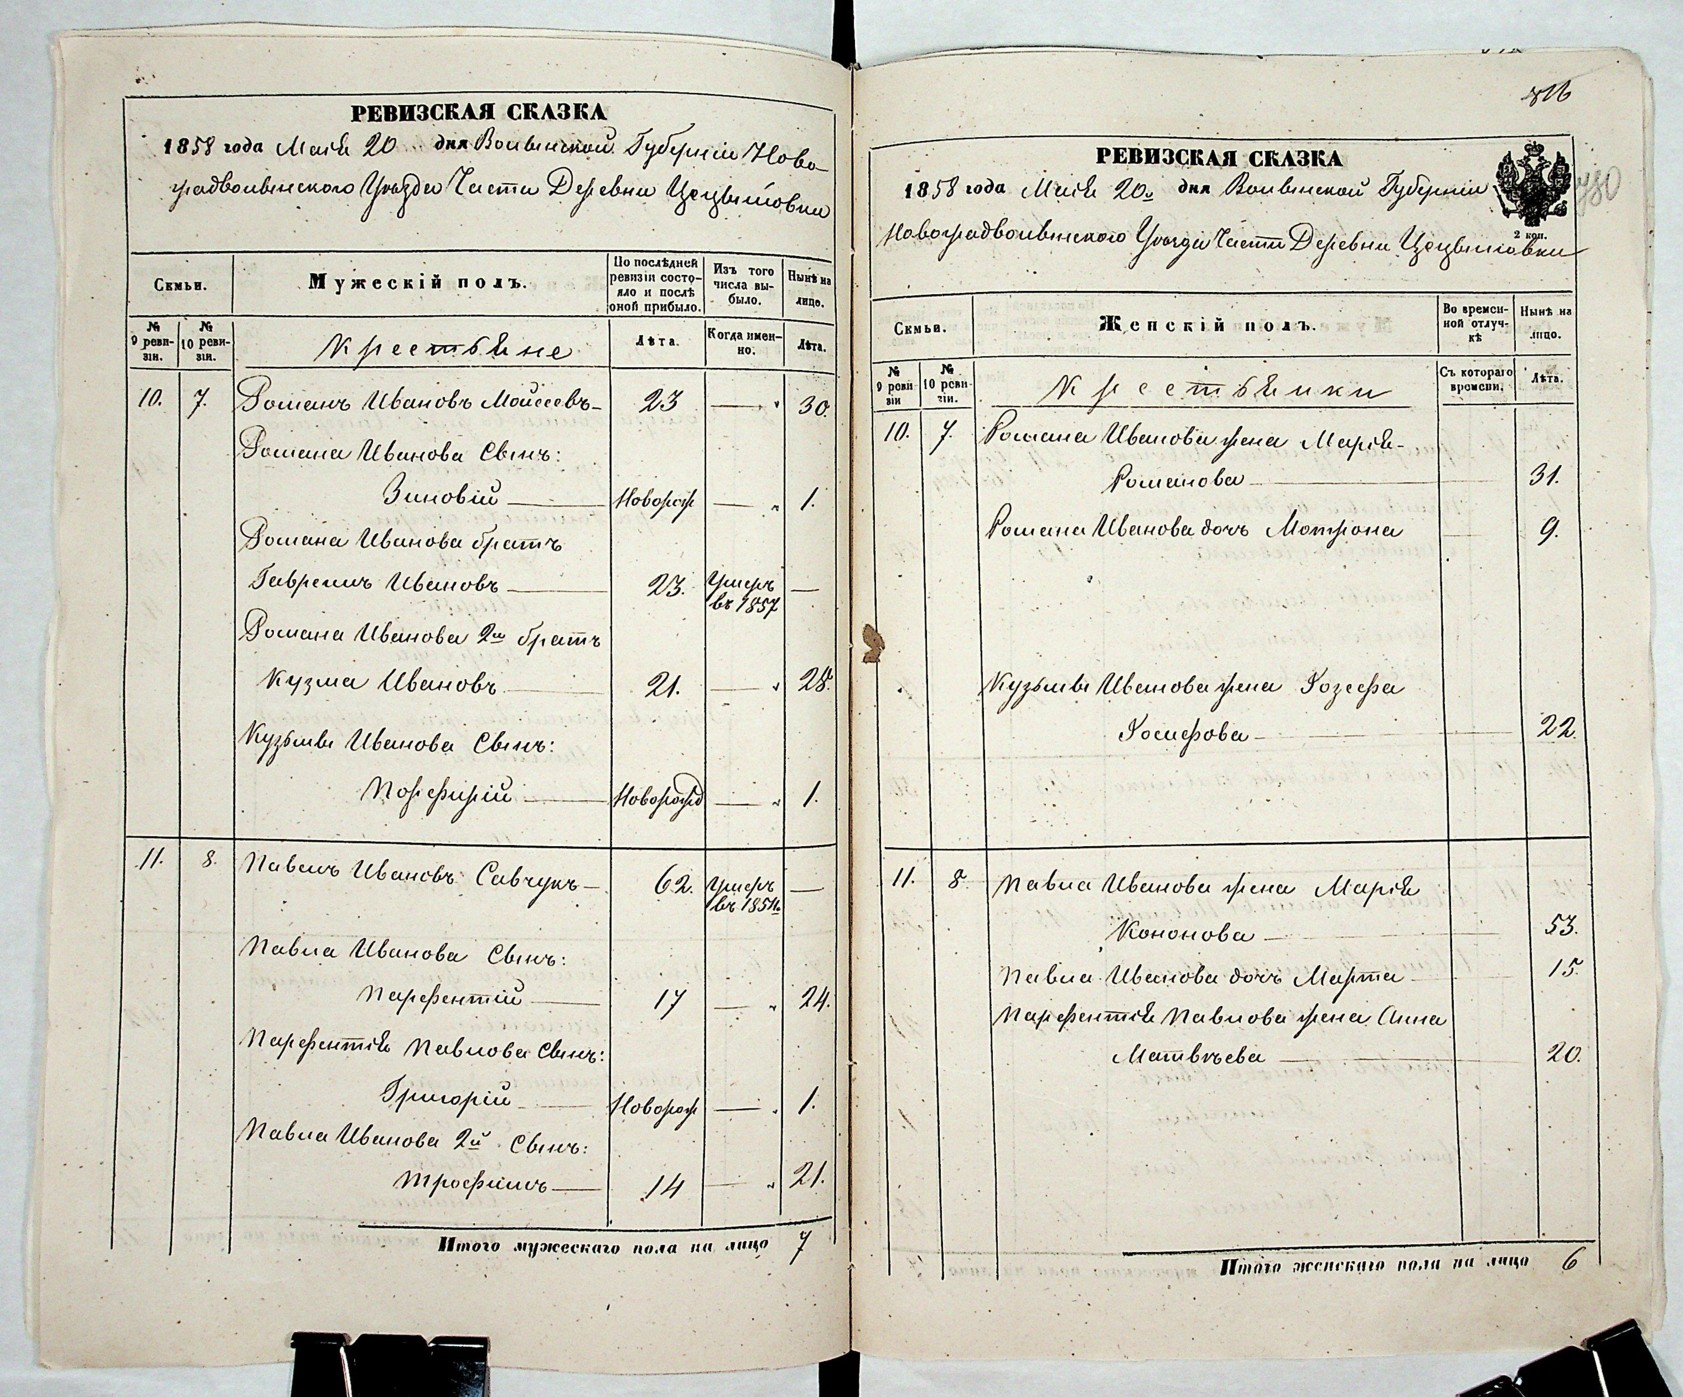 РЕВИЗСКАЯ СКАЗКА
1858 года Мая 20 дня Волынской Губернiи Ново-
градволынского Уѣзда Части Деревни Цецылiовки
Семьи.
Мужескiй полъ.
По послѣдней ревизiи состояло и послѣ оной прибыло.
Изъ того числа выбыло.
Нынѣ на лицо.
№ 9 ревизiи.
№ 10 ревизiи.
Крестьяне
Лѣта.
Когда именно.
Лѣта.
10. 7. Романъ Ивановъ Мойсеевъ 23 — „ 30.
Романа Иванова Сынъ:
Зиновiй Новорож — „ 1.
Романа Иванова братъ
Гаврилъ Ивановъ 23. Умеръ въ 1857 —
Романа Иванова 2й братъ
Кузма Ивановъ 21. — „ 28.
Кузьмы Иванова Сынъ:
Порфирiй Новорожд — „ 1.
11. 8. Павелъ Ивановъ Савчукъ 62. Умеръ въ 1854 —
Павла Иванова Сынъ:
Парфентiй 17 — „ 24.
Парфентiя Павлова Сынъ:
Григорiй Новорож — „ 1.
Павла Иванова 2й Сынъ:
Трофимъ 14 — „ 21.
Итого мужескаго пола на лицо 7
780
РЕВИЗСКАЯ СКАЗКА
2 коп.
1858 года Мая 20 дня Волынской Губернiи
Новоградволынского Уѣзда Части Деревни Цецылiовки
Семьи.
Женскiй полъ.
Во временной отлучкѣ
Нынѣ на лицо.
№ 9 ревизiи
№ 10 ревизiи.
Крестьянки
Съ котораго времени.
Лѣта.
10. 7. Романа Иванова жена Марiя
Романова 31.
Романа Иванова дочь Мотрона 9.
Кузьмы Иванова жена Iозефа
Iосифова 22.
11. 8. Павла Иванова жена Марiя
Кононова 53.
Павла Иванова дочь Марта 15.
Парфентiя Павлова жена Анна
Матвѣева 20.
Итого женскаго пола на лицо 6